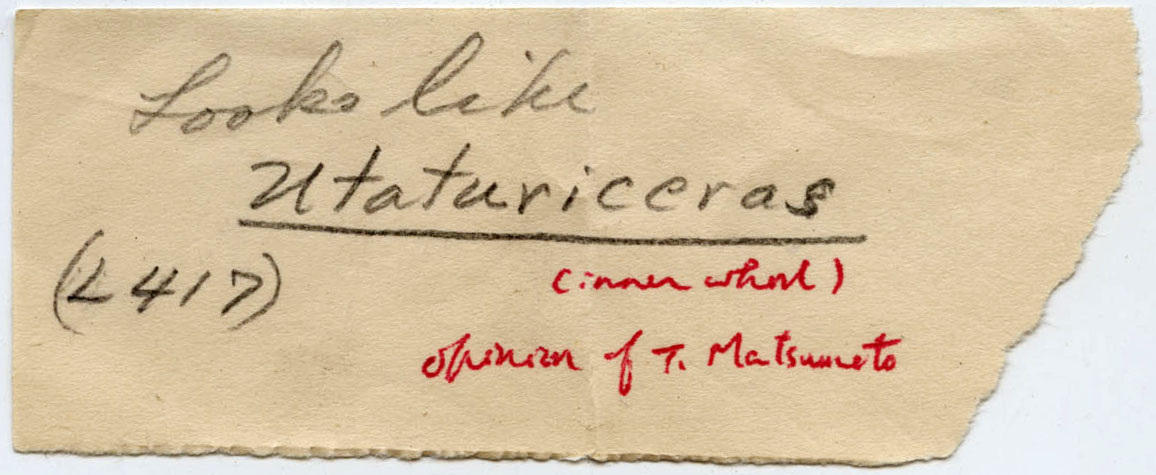 Looks like
Utaturiceras
(L 417)
(inner whorl)
opinion of T. Matsumoto